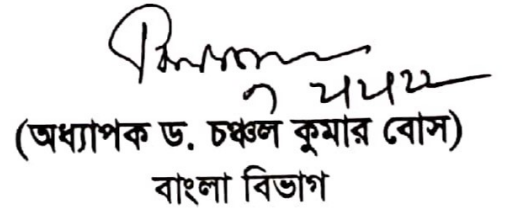 (অধ্যাপক ড. চঞ্চল কুমার বোস)
বাংলা বিভাগ